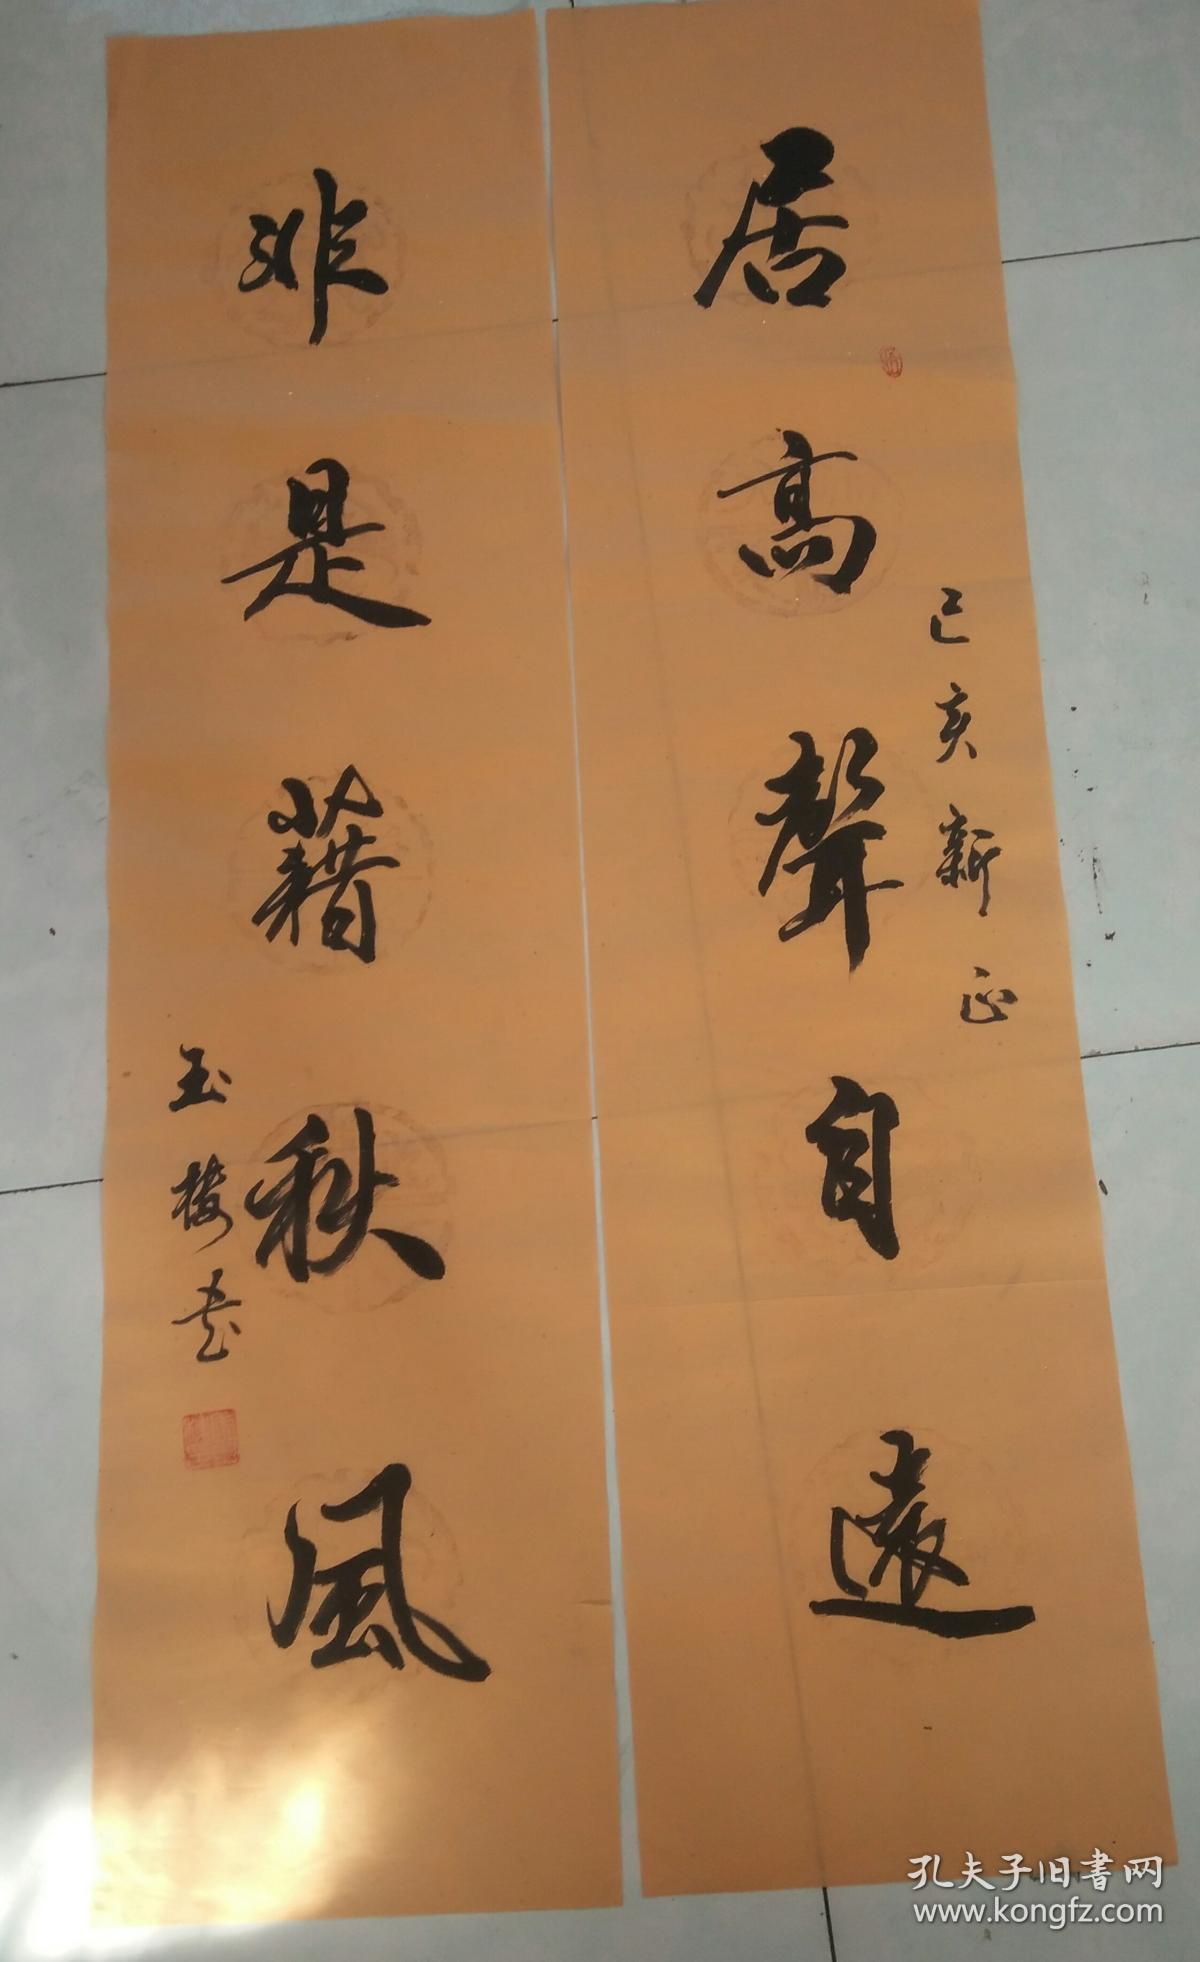 居高聲自遠
己亥新正
非是藉秋風
玉楼書
孔夫子旧書网
www.kongfz.com